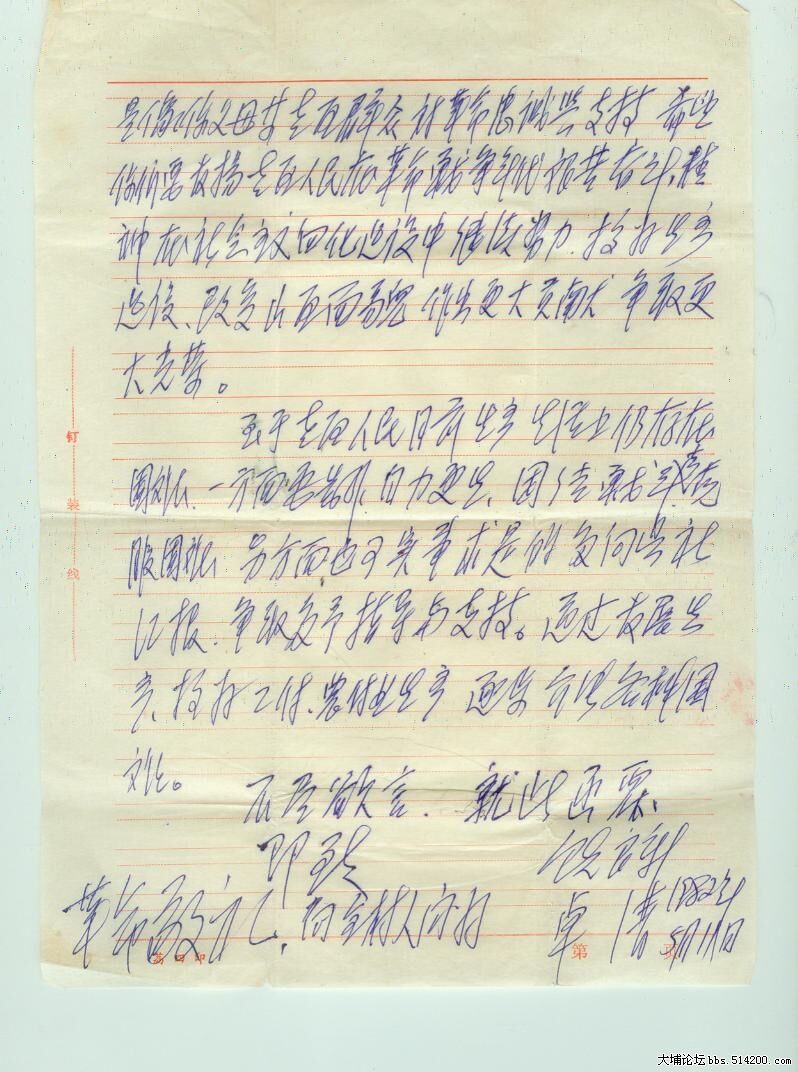 是你们父母对老区群众对革命忠诚与支持 希望
你们要发扬老区人民在革命战争年代艰苦奋斗精
神在社会主义四化建设中继续努力、搞好生产
建设、改变山区面貌 作出更大贡献 争取更
大光荣。
至于老区人民目前生产生活上仍存在
困难、一方面要 自力更生、团结 克
服困难 另方面也可实事求是的多向公社
汇报、争取多予指导与支持。通过发展生
产、搞好工作、农村业生产 逐步 各种困
难。
不尽欲言、就此函票、
即致
革命敬礼、 村人问好
卓
1982年
8月11日
钉
装
线
第 页
大埔论坛 bbs.514200.com